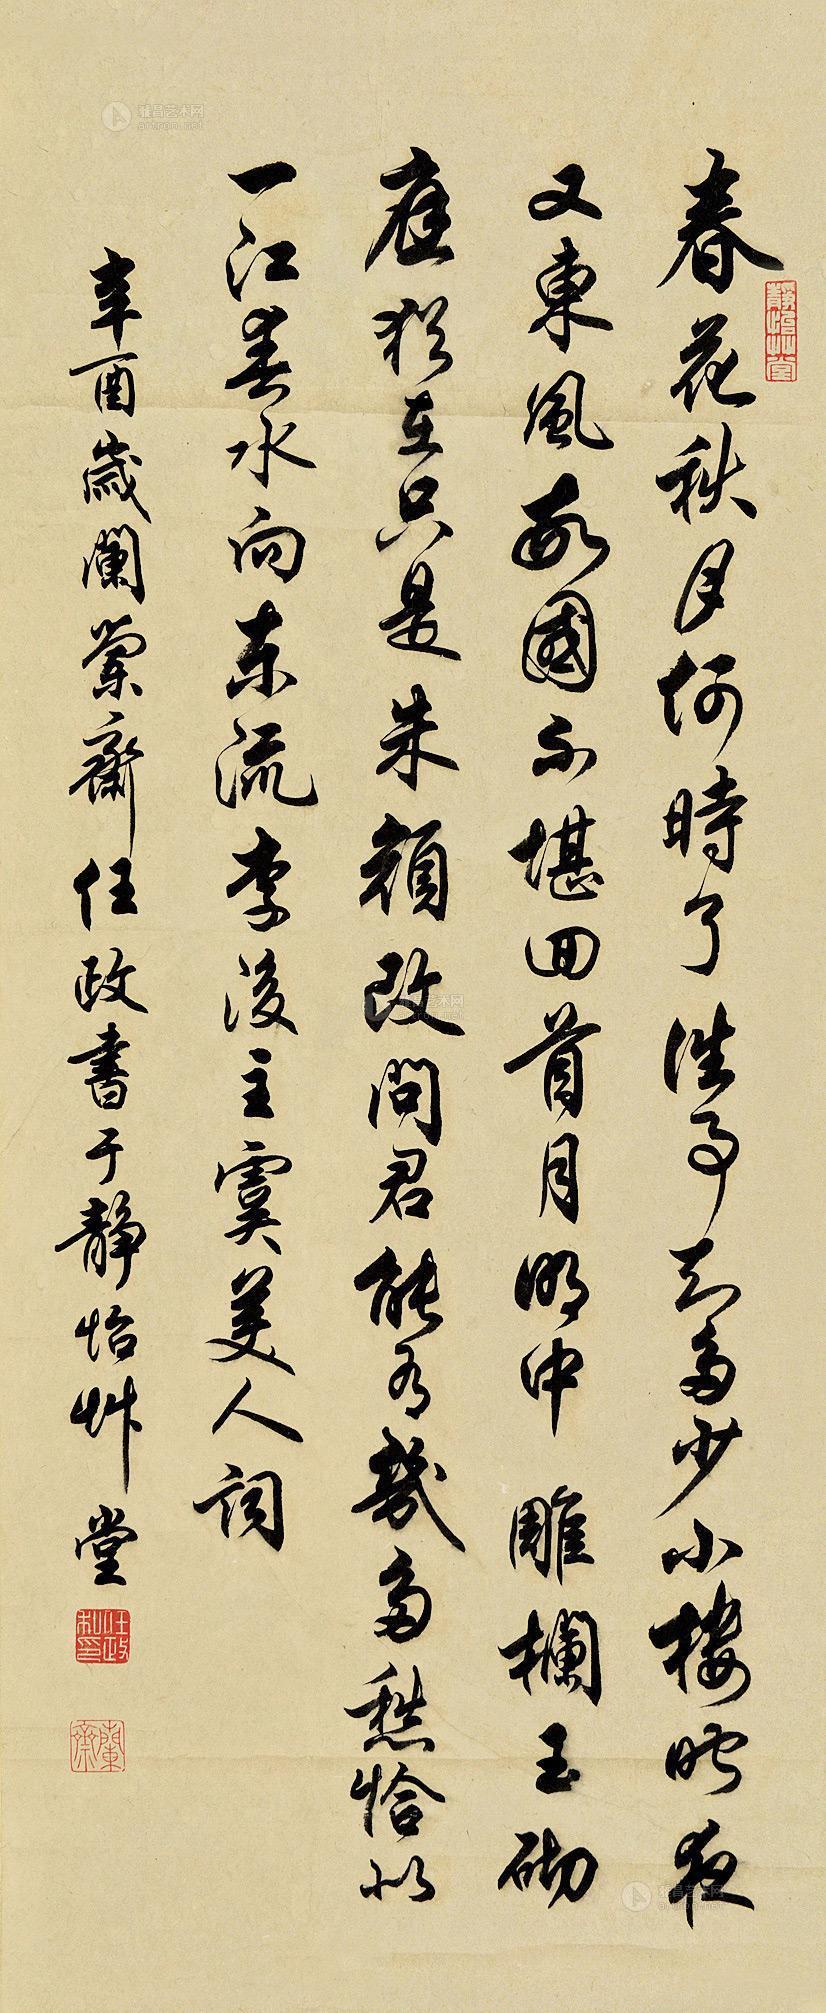 春花秋月何時了往事知多少小樓昨夜
又東風故國不堪回首月明中雕欄玉砌
應猶在只是朱顏改問君能有幾多愁恰似
一江春水向東流李後主虞美人詞
辛酉歲闌蘭齋任政書于靜怡艸堂
靜怡艸堂
蘭齋
雅昌艺术网
artron.net
雅昌艺术网
artron.net
雅昌艺术网
artron.net